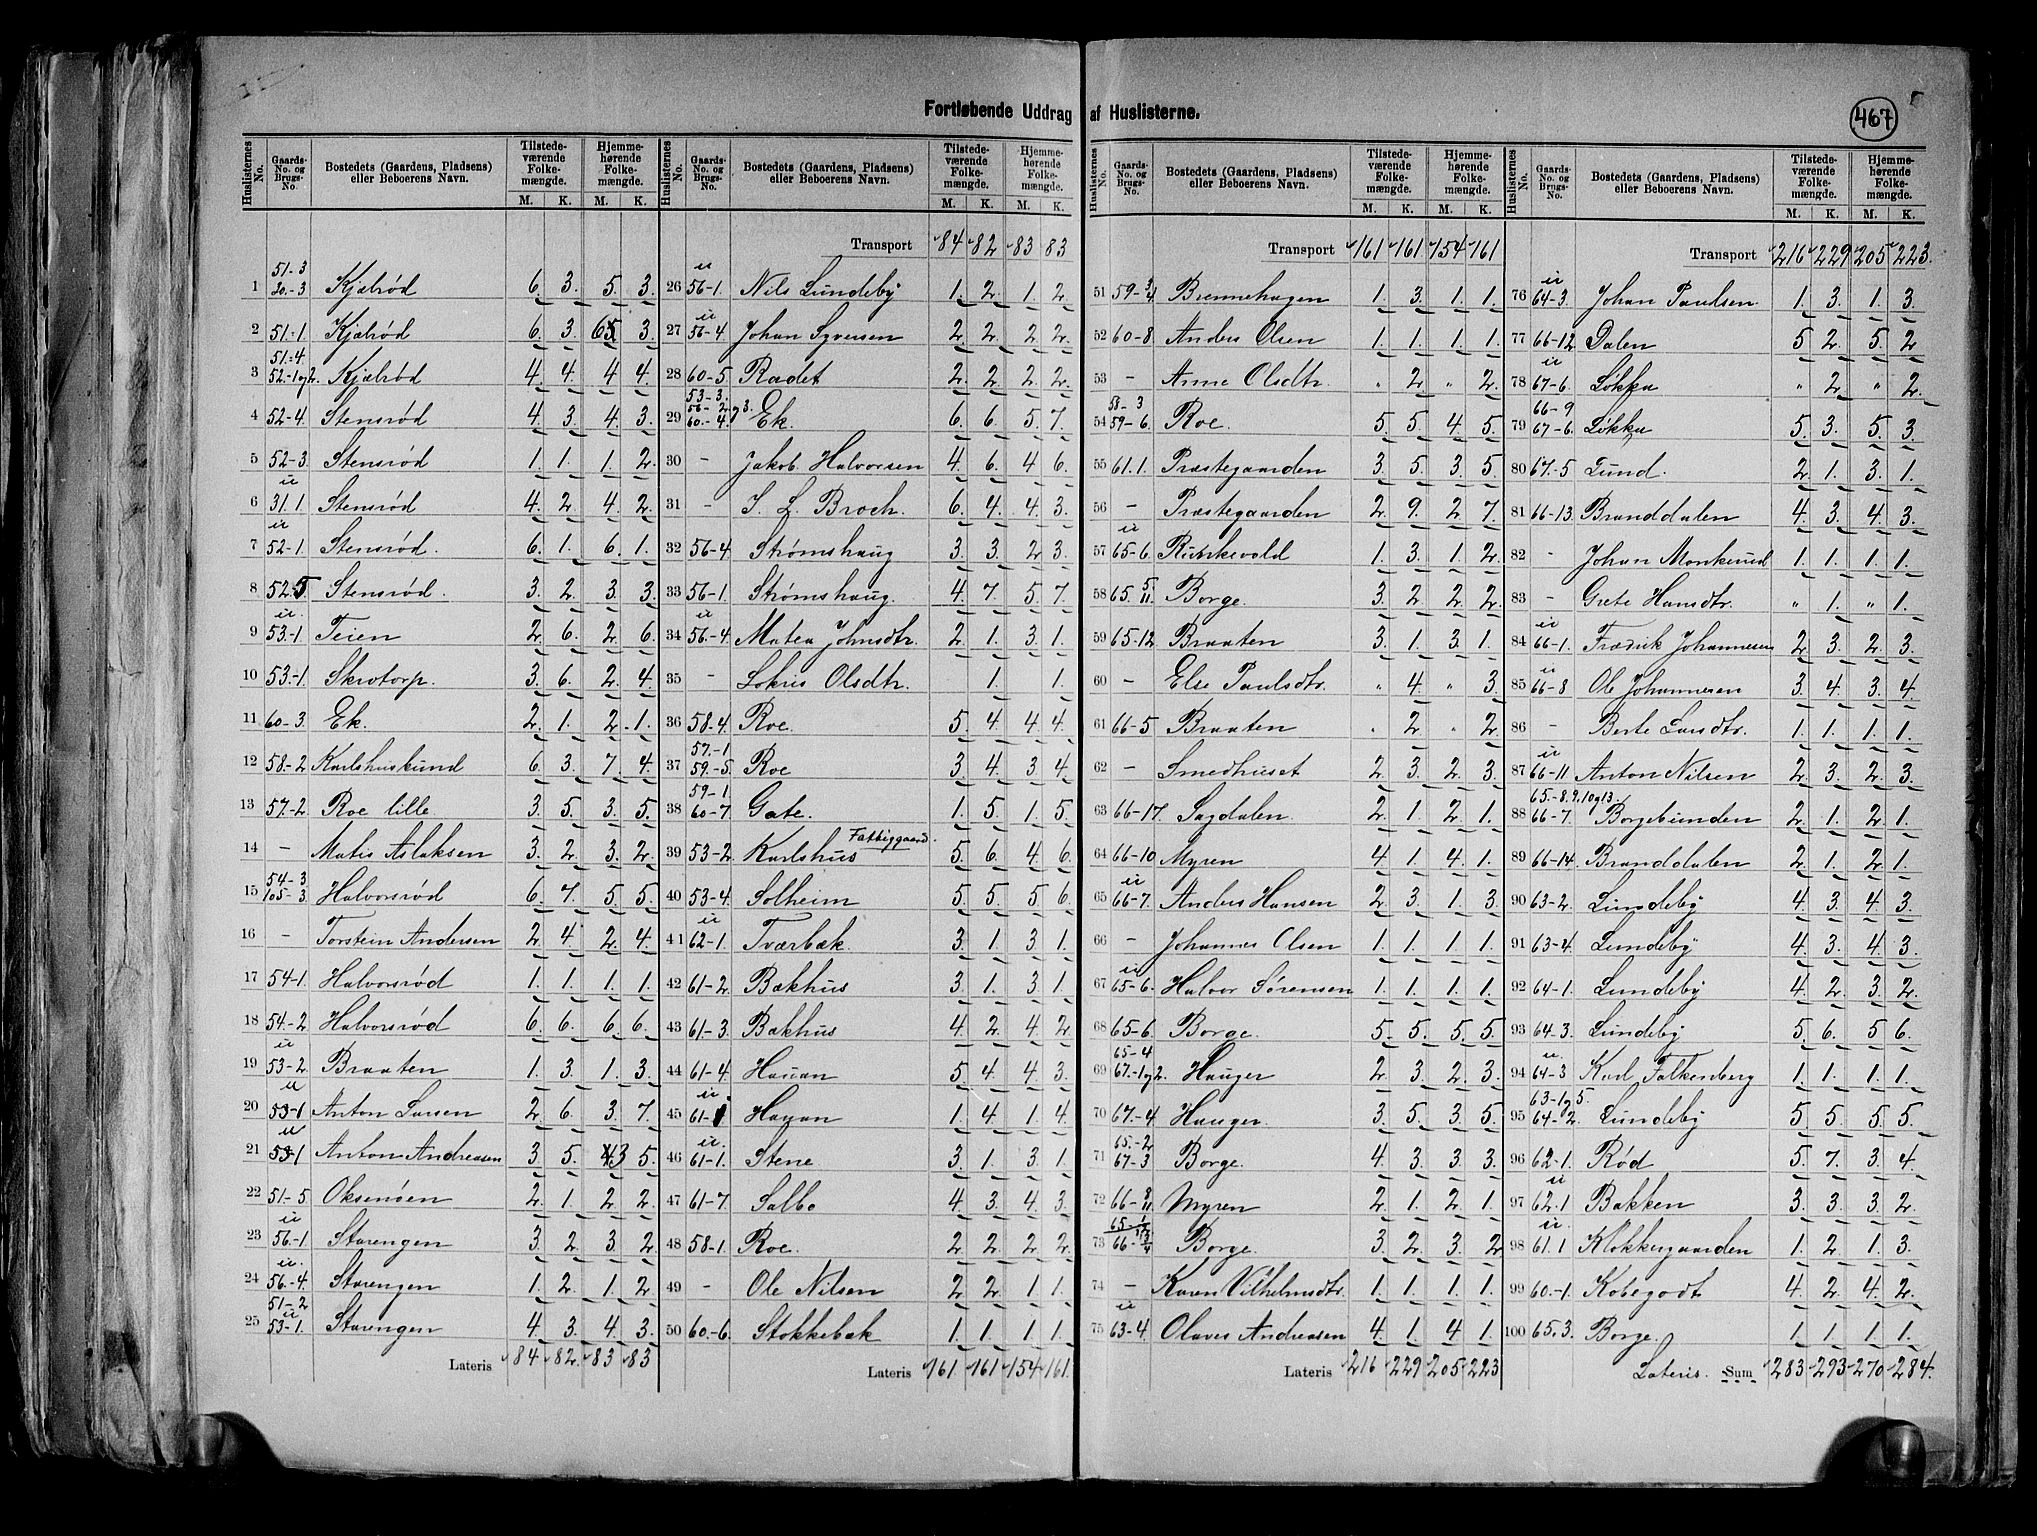 467
Fortløbende Uddrag af Huslisterne.
Huslisternes No. | Gaards-No. og Brugs-No. | Bostedets (Gaardens, Pladsens) eller Beboerens Navn. | Tilstedeværende Folkemængde. M. K. | Hjemmehørende Folkemængde. M. K.
1 51-3 20-3 Kjølrød 6. 3. 5. 3.
2 51-1 Kjølrød 6. 3. 5 3.
3 51-4. 52-1 og 2. Kjølrød 4. 4. 4 4.
4 52-4. Stensrød 4. 3. 4. 3.
5 52-3. Stensrød 1. 1. 1. 2.
6 u 31.1 Stensrød 4. 2. 4. 2.
7 u 52-1. Stensrød. 6. 1. 6. 1.
8 52-5 Stensrød. 3. 2. 3. 3.
9 u 53-1 Teien 2. 6. 2. 6.
10 53-1. Skrotorp. 3. 6. 2. 4.
11 60-3. Ek. 2. 1. 2. 1.
12 58-2 Karlshuskund 6. 3. 7. 4.
13 57-2. Roe lille 3. 5. 3. 5.
14 - Matis Aslaksen 3. 2. 3. 2.
15 54-3 105-3. Halvorsrød 6. 7. 5. 5.
16 - Torstein Andersen 2. 4. 2. 4.
17 54-1. Halvorsrød 1. 1. 1. 1.
18 54-2. Halvorsrød 6. 6. 6. 6.
19 u 53-2 Braaten 1. 3. 1. 3.
20 u 53-1 Anton Larsen 2. 6. 3. 7.
21 u 53-1 Anton Andreasen 3. 5. 3 5.
22 51-5 Oksenøen 2. 1. 2. 2.
23 u 56-1. Starengen 3. 2. 3. 2.
24 u. 56-4. Starengen 1. 2. 1. 2.
25 51-2 u 53-1. Starengen 4. 3. 4. 3.
Lateris 84 82. 83 83
Huslisternes No. | Gaards-No. og Brugs-No. | Bostedets (Gaardens, Pladsens) eller Beboerens Navn. | Tilstedeværende Folkemængde. M. K. | Hjemmehørende Folkemængde. M. K.
Transport 84 82 83 83
26 u 56-1. Nils Lundeby 1. 2. 1. 2.
27 u 56-4 Johan Syversen 2. 2. 2. 2.
28 60-5. Rødet 2. 2. 2. 2.
29 53-3. 56-2 og 3. 60-4. Ek. 6. 6. 5. 7.
30 - Jakob Halvorsen 4. 6. 4 6.
31 - S. L. Broch. 6. 4. 4. 3.
32 56-4 Strømshaug 3. 3. 2. 3.
33 56-1. Strømshaug. 4. 7. 5. 7.
34 u 56-4. Matea Johnsdtr. 2. 1. 3. 1.
35 - Lokris Olsdtr. 1. 1.
36 58-4. Roe. 5. 4. 4. 4.
37 57-1 59-5. Roe 3. 4. 3. 4.
38 59-1. 60-7 Gate. 1. 5. 1. 5.
39 53-2. Karlshus Fattiggaard. 5. 6. 4. 6.
40 53-4. Solheim 5. 5. 5. 6.
41 u 62-1. Tværbæk. 3. 1. 3. 1.
42 61-2. Bækhus 3. 1. 3. 1.
43 61-3. Bækhus 4. 2. 4. 2.
44 61-4. Hauan 5. 4. 4. 3.
45 u. 61-1 Hauan 1. 4. 1. 4.
46 u. 61-1. Stene 3. 1. 3. 1.
47 61-7. Salbo 4. 3. 4. 3.
48 58-1. Roe. 2. 2. 2. 2.
49 - Ole Nilsen 2. 2. 1. 1.
50 60-6. Stokkebæk 1. 1. 1. 1.
Lateris 161. 161 154 161.
Huslisternes No. | Gaards-No. og Brugs-No. | Bostedets (Gaardens, Pladsens) eller Beboerens Navn. | Tilstedeværende Folkemængde. M. K. | Hjemmehørende Folkemængde. M. K.
Transport 161 161 154 161
51 59-3/4 Brennehagen 1. 3. 1. 1.
52 60-8. Anders Olsen 1. 1. 1. 1.
53 - Anne Olsdtr. " 2. " 2.
54 58-3 59-6. Roe. 5. 5. 4. 5.
55 61.1. Præstegaarden 3. 5. 3. 5.
56 - Præstegaarden 2. 9. 2. 7.
57 u 65-6. Runkevold 1. 3. 1. 2.
58 65. 5/11. Borge. 3. 2. 2. 2.
59 65-12 Braaten 3. 1. 3. 1.
60 - Else Paulsdtr. " 4. " 3.
61 66-5 Braaten " 2. " 2.
62 - Smedhuset 2. 3. 2. 3.
63 66-17. Sagdalen 2. 1. 2. 1.
64 66-10 Myren 4. 1. 4. 1.
65 u 66-7. Anders Hansen 2. 3. 1. 3.
66 - Johannes Olsen 1. 1. 1. 1.
67 u 65-6. Halvor Sørensen 1. 1. 1. 1.
68 65-6. Borge. 5. 5. 5. 5.
69 65-4 67-1 og 2. Hauger 2. 3. 2. 3.
70 67-4 Hauger. 3. 5. 3. 5.
71 65-2 67-3 Borge. 4. 3. 3. 3.
72 66-8/11 Myren 2. 1. 2. 1.
73 Borge. 3. 2. 3. 2
74 - Karen Vilhelmsdtr. 1. 1. 1. 1.
75 u 63-4. Olaves Andreasen 4. 1. 4 1.
Lateris 216 229 205 223
Huslisternes No. | Gaards-No. og Brugs-No. | Bostedets (Gaardens, Pladsens) eller Beboerens Navn. | Tilstedeværende Folkemængde. M. K. | Hjemmehørende Folkemængde. M. K.
Transport 216 229 205 223.
76 u 64-3. Johan Paulsen 1. 3. 1. 3.
77 66-12 Dalen 5. 2. 5. 2
78 u 67-6. Løkka " 2. " 2.
79 66-9 67-6. Løkka 5. 3. 5. 3.
80 67-5 Lund. 2. 1. 3. 1.
81 66-13. Branddalen 4. 3. 4. 3.
82 - Johan Monkerud 1. 1. 1. 1.
83 - Grete Hansdtr. " 1. " 1.
84 u 66-1. Fredrik Johannesen 2. 3. 2. 3.
85 u 66-8 Ole Johannesen 3. 4. 3. 4.
86 - Berte Larsdtr. 1. 1. 1. 1.
87 u 66-11 Anton Nilsen 2. 3. 2. 3.
88 65-8.9.10 og 13. 66-7. Borgebunden 2. 1. 2. 1.
89 66-14. Branddalen 2. 1. 2. 1.
90 63-2. Lundeby 4. 3. 4. 3.
91 63-4. Lundeby 4. 3. 4. 3.
92 64-1. Lundeby 4. 2. 3. 2.
93 64-3. Lundeby 5. 6. 5 6.
94 u. 64-3 Karl Falkenberg 1. 1. 1. 1.
95 63-1 og 5. 64-2. Lundeby 5. 5. 5. 5.
96 62-1. Rød 5. 7. 3. 4.
97 u 62.1 Bakken 3. 3. 3. 2.
98 u. 61.1 Klokkergaarden 1. 2. 1. 3.
99 60-1. Kobegodt 4. 2. 4. 2.
100 65.3. Borge. 1. 1. 1. 1.
Lateris. Sum 283 293 270 284.